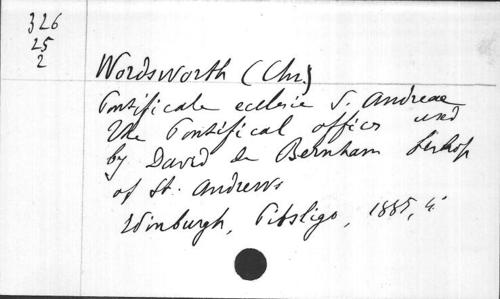 326
25
2
Wordsworth (Chr.)
Pontificale ecclesie S. Andreae
The Pontifical offices used
by David de Bernham bishop
of St. Andrews
Edinburgh, Pitsligo, 1885, 4°